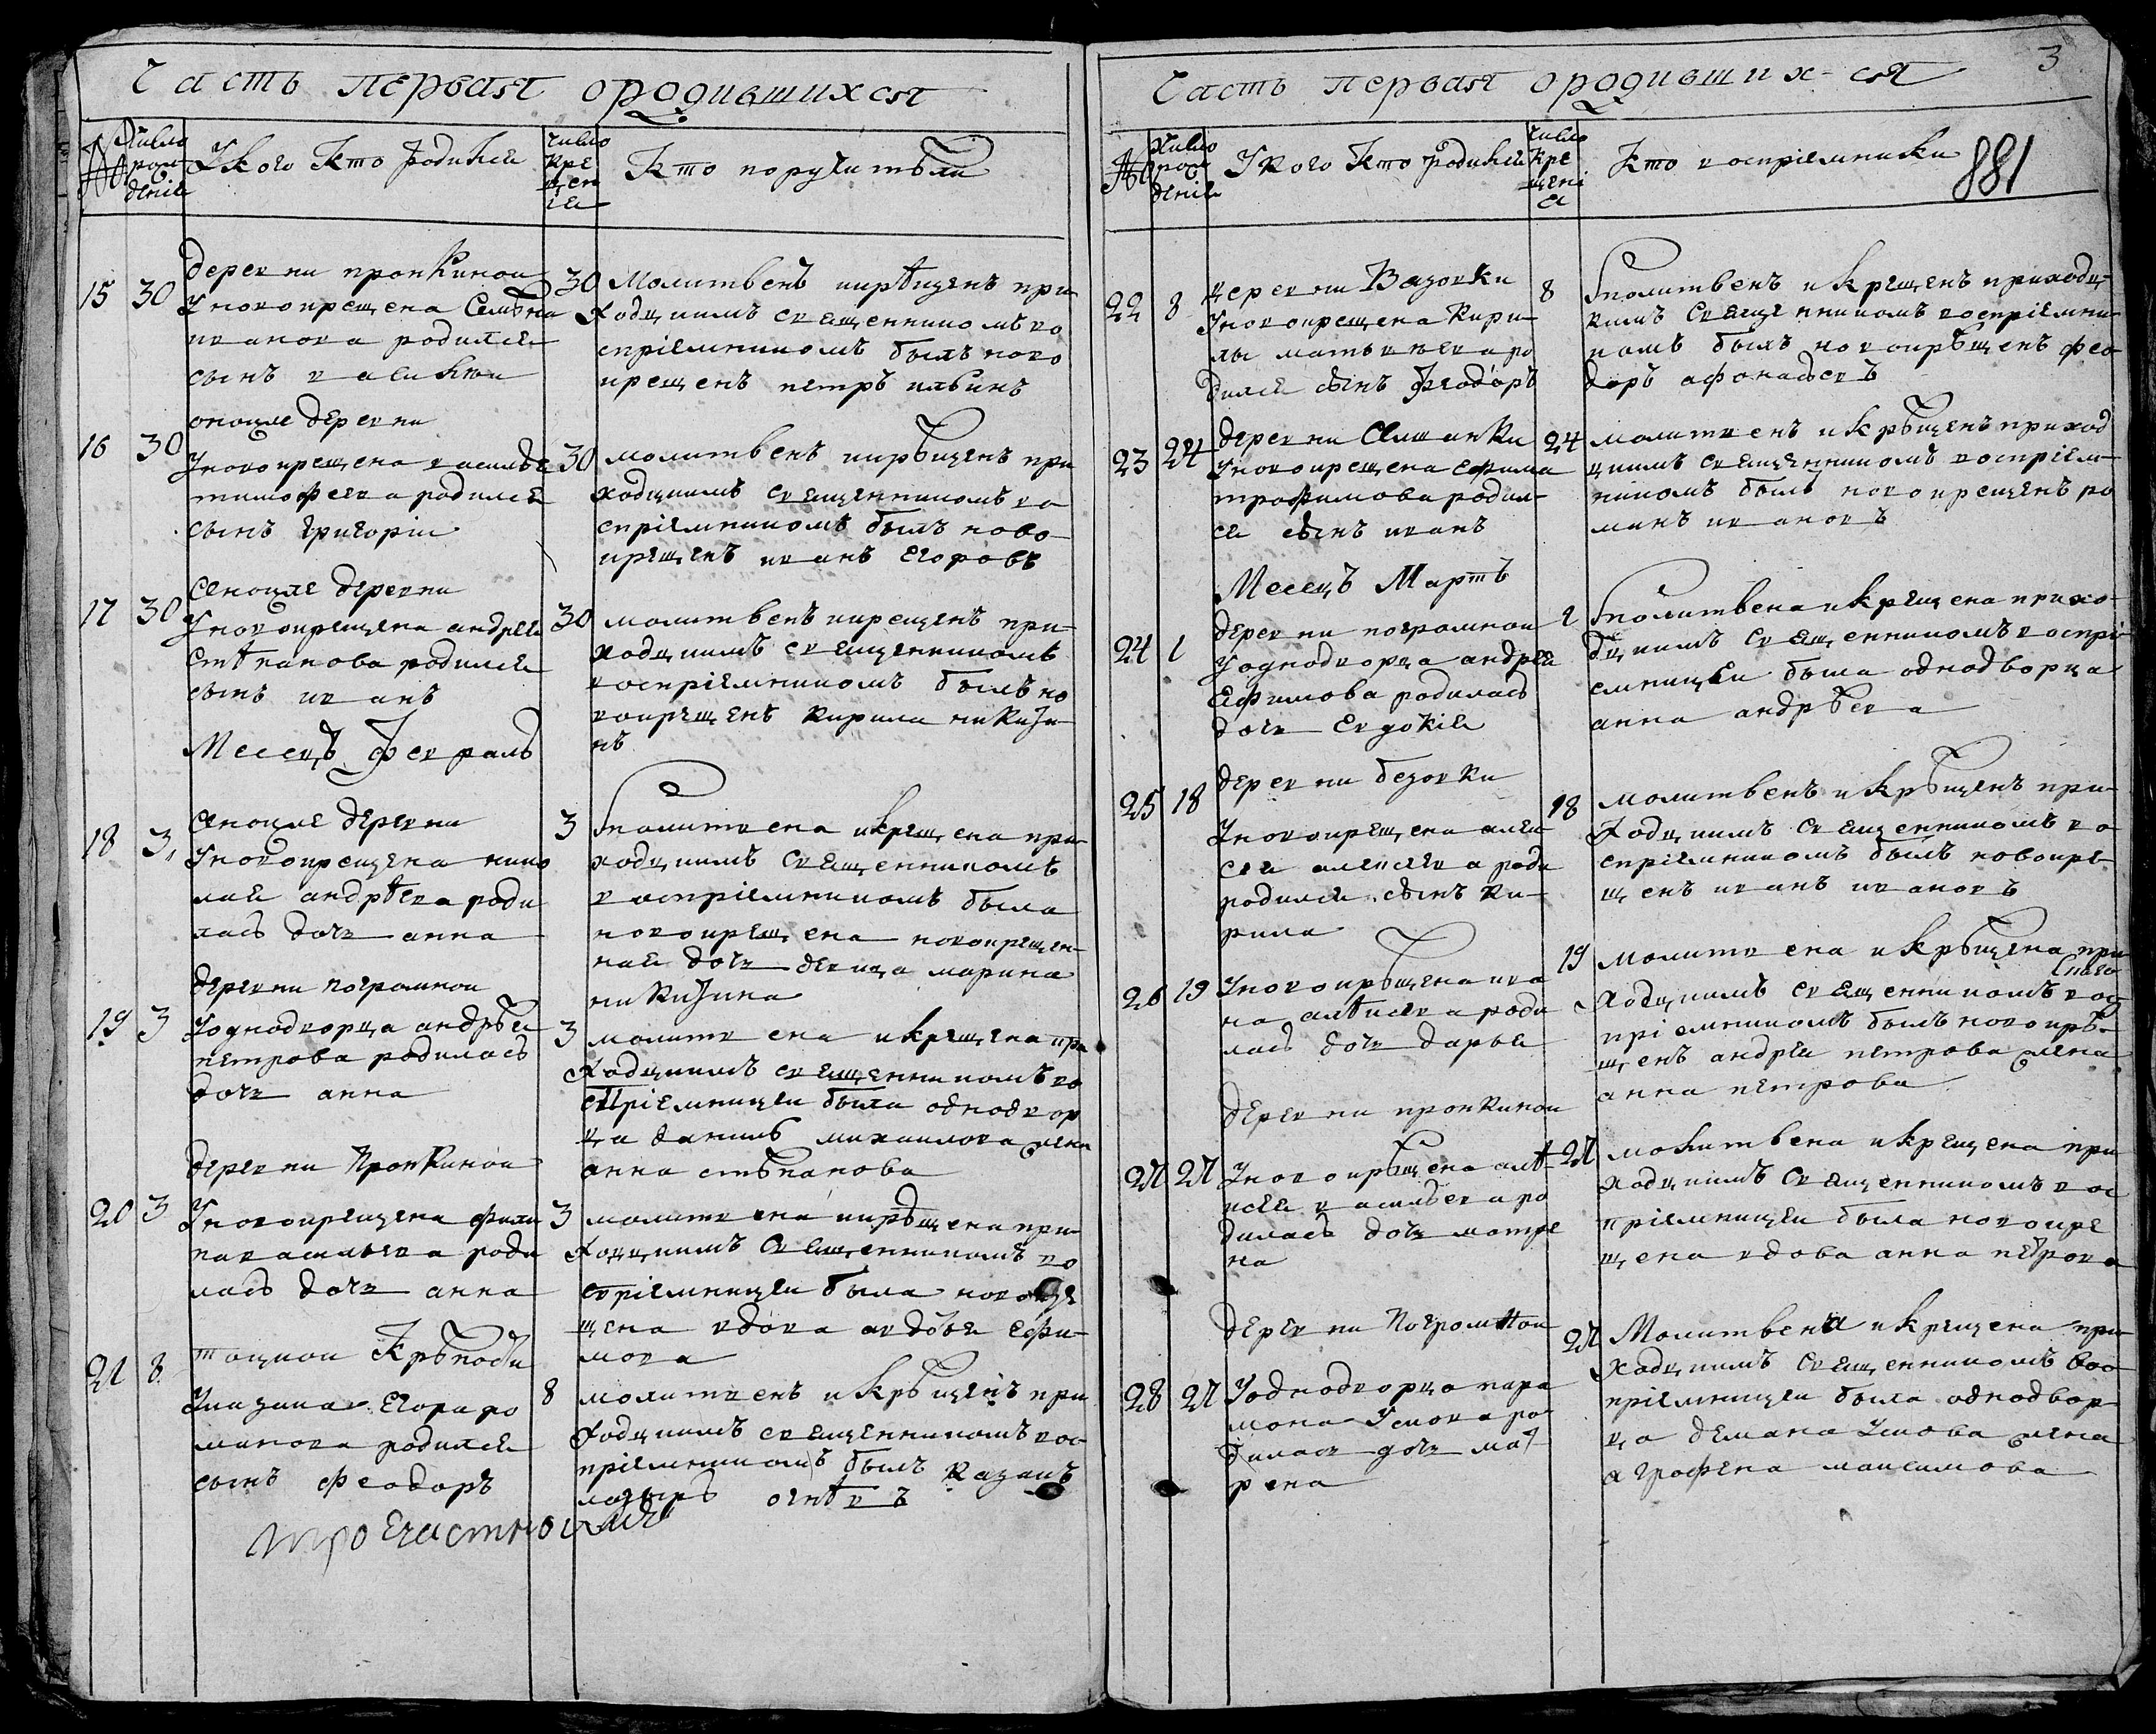 Часть первая ородившихся
№
Число рождения
У кого кто родился
число крещения
Кто поручители
15
30
деревни пронкиной
У новокрещена Семена
иванова родился
сынъ василеи
30
Молитвенъ икрѣщенъ при
ходцкимъ священникомъ во
спріемникомъ былъ ново
крещенъ петръ ильинъ
16
30
оноиже деревни
У новокрещена василья
тимофеева родился
сынъ григоріи
30
молитвенъ икрѣщенъ при
ходцкимъ священникомъ во
спріемникомъ былъ ново-
крещенъ иванъ егоровъ
17
30
Еноиже деревни
У новокрещена андрея
Степанова родился
сынъ иванъ
30
молитвенъ икрещенъ при-
ходцкимъ священникомъ
воспріемникомъ былъ но
вокрещенъ кирила никити-
нъ
Месецъ Февраль
18
3
Еноиже деревни
У новокрещена нико
лая андрѣева роди
лась дочь анна
3
молитвена икрещена при-
ходцкимъ священникомъ
воспріемникомъ была
новокрещена новокрещен-
ная дочь девица марина
никитина
19
3
деревни погромнои
У однодворца андрѣя
петрова родилась
дочь анна
3
молитвена икрещена при
ходцкимъ священникомъ во
спріемницеи была однодвор
ца данилы михаилова жена
анна стѣпанова
20
3
деревни Пронкинои
У новокрещена фили
па васильева роди
лась дочь анна
3
молитвена икрѣщена при-
ходцкимъ священникомъ во
спріемницеи была новокре
щена вдова авдотья ефи-
мова
21
8
тоцкои Крѣпости
У казака Егора ро
манова родился
сынъ феодоръ
8
молитвенъ икрѣщенъ при
ходцкимъ священникомъ вос-
пріемникомъ былъ казакъ
Часть первая ородивших-ся
3
881
№
Число рождения
У кого кто родился
число крещения
Кто воспріемники
22
8
деревни Вязовки
У новокрещена Кири-
лы матвѣева ро
дился сынъ Феодоръ
8
молитвенъ икрещенъ приходц-
кимъ священникомъ воспріемни-
комъ былъ новокрѣщенъ фео
доръ афонасьевъ
23
24
У новокрещена ефима
трофимова родил-
ся сынъ иванъ
24
молитвенъ икрѣщенъ приход
цкимъ священникомъ воспріем-
никомъ былъ новокрещенъ ро
манъ ивановъ
Месецъ Мартъ
24
1
деревни погромнои
У однодворца андрея
Ефимова родилась
дочь Евдокія
молитвена икрещена прихо-
дцкимъ священникомъ воспрі-
емницеи была однодворца
анна андрѣева
25
18
деревни безовки
У новокрещена алек-
сея алексеева роди
родился сынъ Ки-
рила
18
молитвенъ икрѣщенъ при-
ходцкимъ священникомъ во
спріемникомъ былъ новокре-
щенъ иванъ ивановъ
26
19
У новокрѣщена ива
на алѣксеева роди
лась дочь дарья
19
молитвена икрѣщена при
ходцкимъ священникомъ вос
пріемникомъ былъ новокрѣ-
щенъ андреи петрова жена
анна петрова
27
27
деревни пронкинои
У новокрѣщена алѣ-
ксея васильева ро
дилась дочь матре
на
27
молитвена икрещена при
ходцкимъ священникомъ вос
пріемницеи была новокре
щена вдова анна пѣтрова
28
27
деревни Погромнои
У однодворца пара
мона Усмова ро-
дилась дочь мат-
рена
27
Молитвена икрещена при-
ходцкимъ священникомъ вос
пріемницеи была однодвор-
ца демана Усмова жена
аграфена максимова